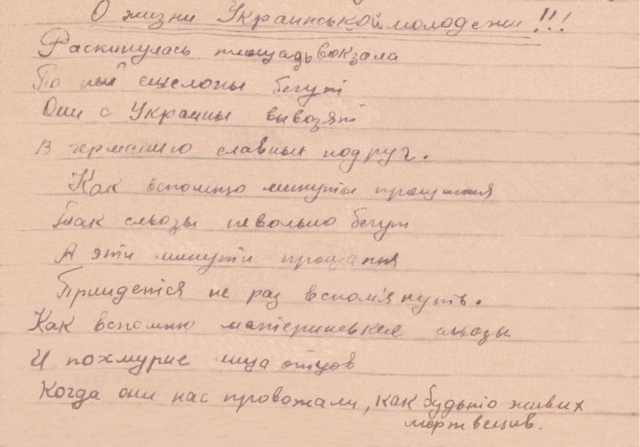 О жизни Украинськой молодежи!!!
Раскинулась площадь вокзала
По ный ешелоны бегут
Они с Украины вывозят
В германию славных подруг.
Как вспомню минути прощання
Так сльозы невольно бегут
А эти минути прощання
Прийдется не раз вспом'януть.
Как вспомню материнськие сльозы
И похмурие лица отцов
Когда они нас провожали, как будьто живих
мертвецов.